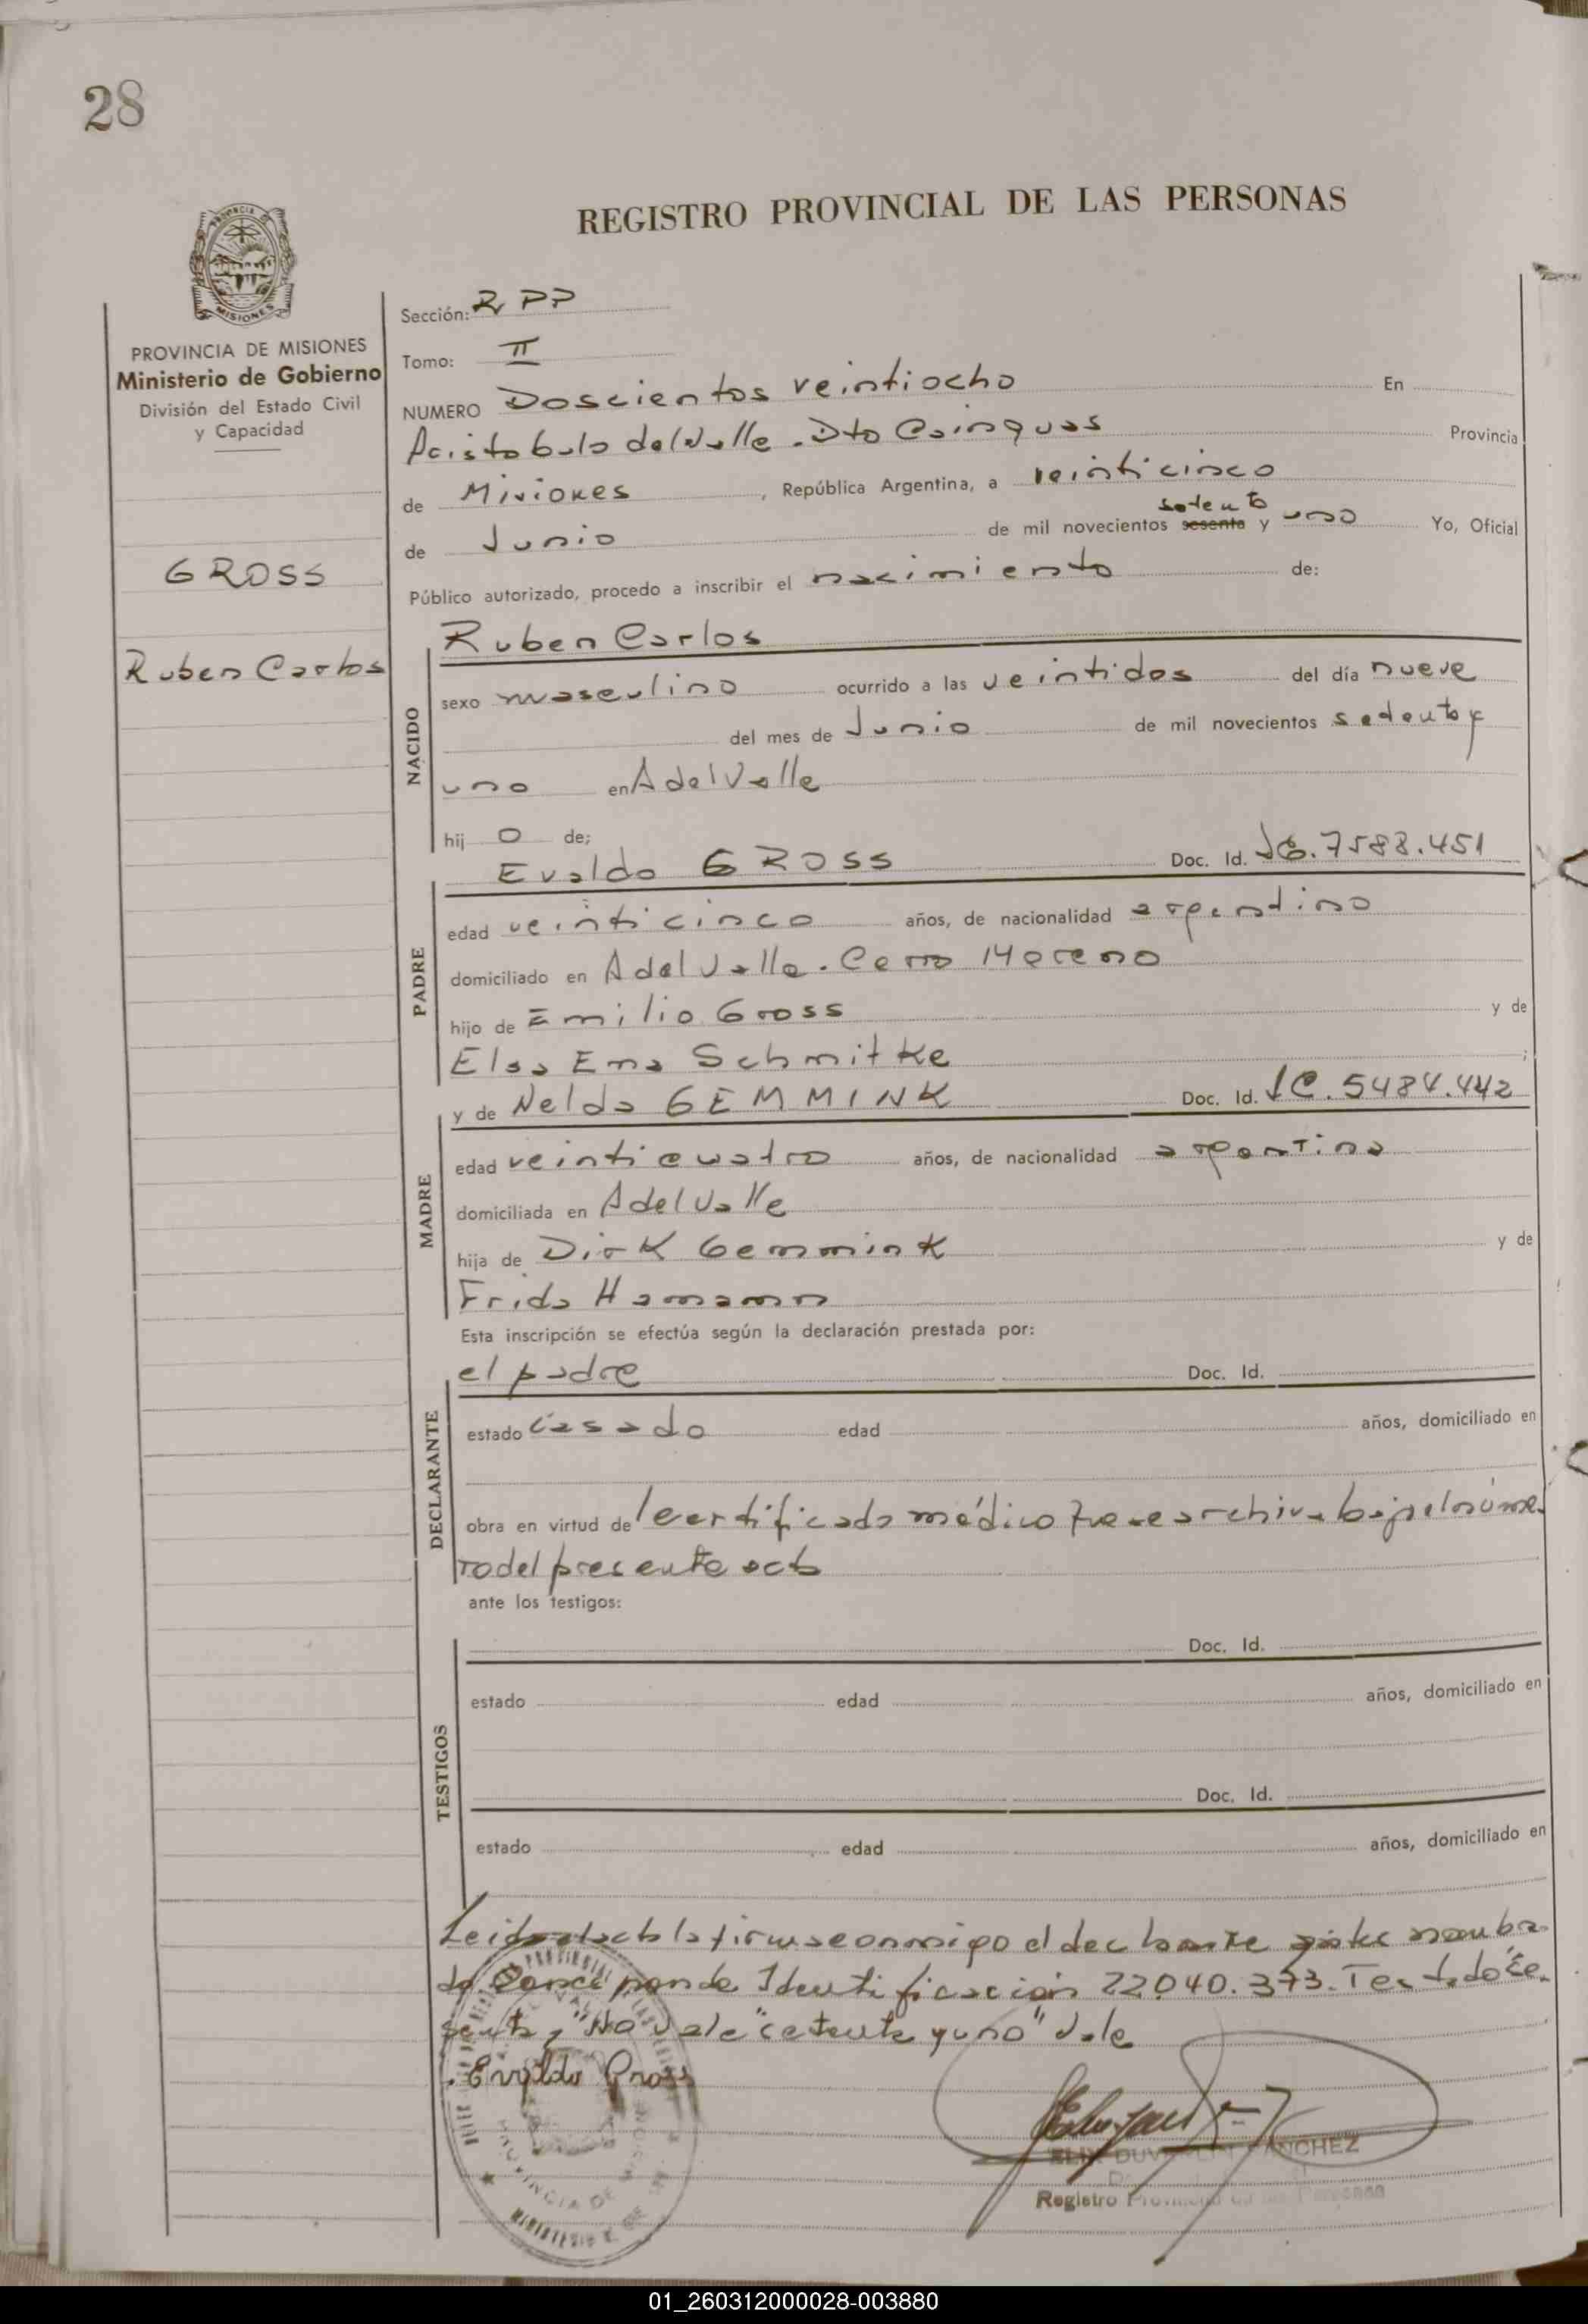 28
REGISTRO PROVINCIAL DE LAS PERSONAS
MISIONES
PROVINCIA DE MISIONES
Ministerio de Gobierno
División del Estado Civil
y Capacidad
GROSS
Ruben Carlos
Sección: R P P
Tomo: II
NUMERO Doscientos veintiocho En
Aristobulo del Valle. Dto Cainguas Provincia
de Misiones, República Argentina, a veinticinco
setenta
de Junio de mil novecientos sesenta y uno Yo, Oficial
Público autorizado, procedo a inscribir el nacimiento de:
NACIDO
Ruben Carlos
sexo masculino ocurrido a las veintidos del día nueve
del mes de Junio de mil novecientos setenta y
uno en A del Valle
hij o de;
PADRE
Evaldo GROSS Doc. Id. 7588.451
edad veinticinco años, de nacionalidad argentino
domiciliado en A del Valle. Cerro Moreno
hijo de Emilio Gross y de
Elsa Ema Schmitke ;
MADRE
y de Nelda GEMMINK Doc. Id. LC. 5484.442
edad veinticuatro años, de nacionalidad argentina
domiciliada en A del Valle
hija de Dirk Gemmink y de
Frida Hamann
Esta inscripción se efectúa según la declaración prestada por:
DECLARANTE
el padre Doc. Id.
estado casado edad años, domiciliado en
obra en virtud del certificado médico que se archiva bajo el núme-
ro del presente acta
ante los testigos:
TESTIGOS
Doc. Id.
estado edad años, domiciliado en
Doc. Id.
estado edad años, domiciliado en
Leida el acta la firma conmigo el declarante antes nombra-
do Corresponde Identificación 22.040.373. Testado "se
senta" "No vale" "setenta y uno" Vale
Evaldo Gross
PROVINCIA DE
SANCHEZ
Registro Provincial de las Personas
01_260312000028-003880